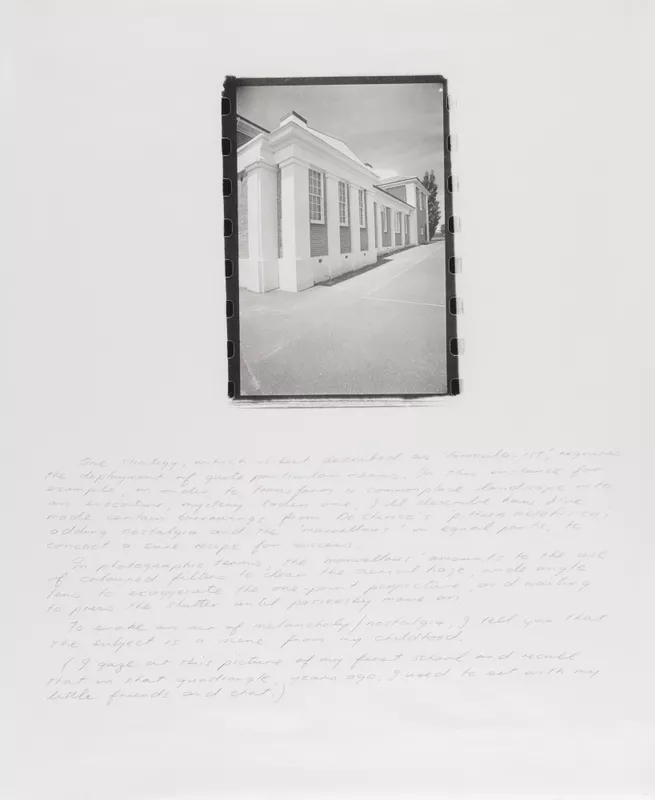 One strategy, which is best described as "formula-ist", requires
the deployment of quite particular means. In this instance for
example, in order to transform a commonplace landscape into
an evocative, mystery laden one, I will describe how I've
made certain borrowings from De Chirico's pittura metafisica;
adding nostalgia and the 'marvellous' in equal parts, to
concoct a sure recipe for success.
In photographic terms, the 'marvellous' amounts to the use
of coloured filters to clear the aerial haze, wide angle
lens to exaggerate the one-point perspective, and waiting
to press the shutter until passersby move on.
To evoke an air of melancholy/nostalgia, I tell you that
the subject is a scene from my childhood.
(I gaze at this picture of my first school and recall
that in that quadrangle, years ago, I used to sit with my
little friends and chat.)